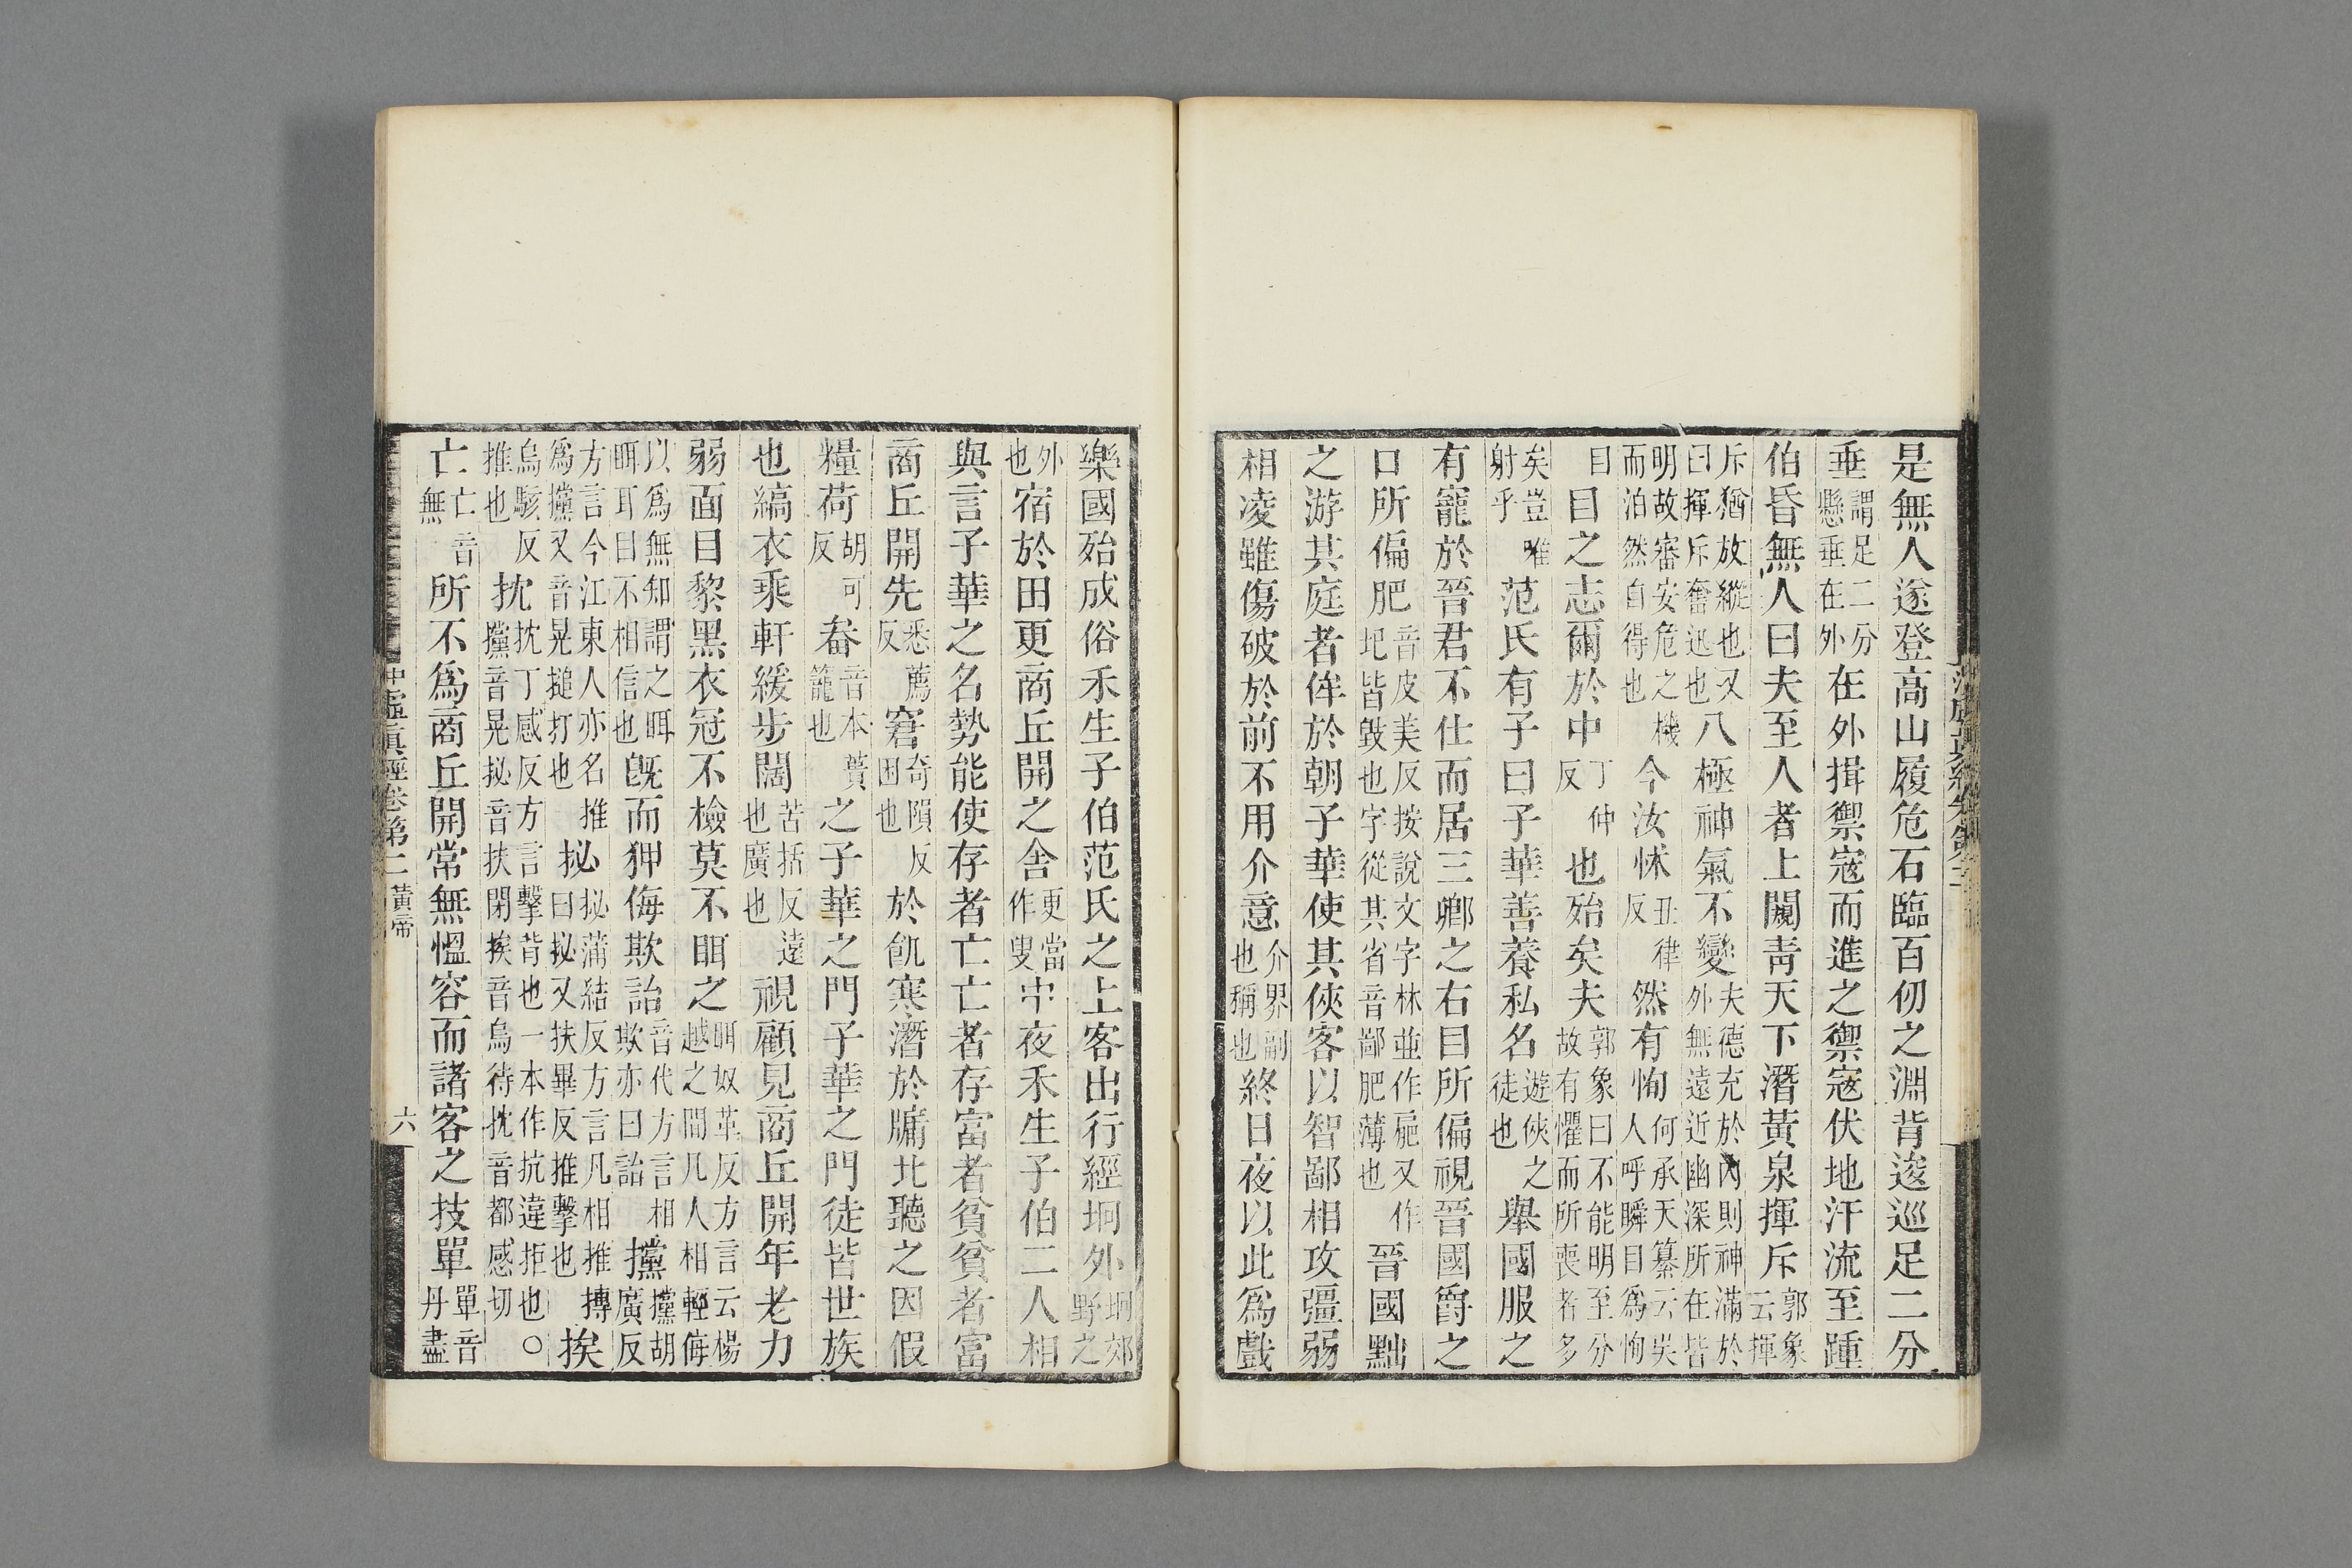 是無人遂登高山履危石臨百仞之淵背逡巡足二分
垂謂足二分懸垂在外在外揖禦寇而進之禦寇伏地汗流至踵
伯昏無人曰夫至人者上闚靑天下潛黃泉揮斥郭象云揮
斥猶放縱也又曰揮斥奮迅也八極神氣不變夫德充於內則神滿於外無遠近幽深所在皆
明故審安危之機而泊然自得也今汝怵丑律反然有恂何承天纂云吳人呼瞬目爲恂
目目之志爾於中丁仲反也殆矣夫郭象曰不能明至分故有懼而所喪者多
矣豈唯射乎范氏有子曰子華善養私名遊俠之徒也舉國服之
有寵於晉君不仕而居三卿之右目所偏視晉國爵之
口所偏肥音皮美反按說文字林並作𦜘又作圯皆毀也字從其省音鄙肥薄也晉國黜
之游其庭者侔於朝子華使其俠客以智鄙相攻彊弱
相凌雖傷破於前不用介意介界副也稱也終日夜以此爲戲
樂國殆成俗禾生子伯范氏之上客出行經坰外坰郊野之
外也宿於田更商丘開之舍更當作叟中夜禾生子伯二人相
與言子華之名勢能使存者亡亡者存富者貧貧者富
商丘開先悉薦反窘奇隕反困也於飢寒潛於牖北聽之因假
糧荷胡可反畚音本蕢籠也之子華之門子華之門徒皆世族
也縞衣乘軒緩步闊苦括反遠也廣也視顧見商丘開年老力
弱面目黎黑衣冠不檢莫不眲之眲奴革反方言云楊越之間凡人相輕侮
以爲無知謂之眲眲耳目不相信也旣而狎侮欺詒音代方言相欺亦曰詒㩻㩻胡廣反
方言今江東人亦名推爲㩻又音晃搥打也㧙㧙蒲結反方言凡相推搏曰㧙又扶畢反推擊也挨
烏駭反推也抌抌丁感反方言擊背也一本作抗違拒也〇㩻音晃㧙音扶閉挨音烏待抌音都感切
亡亡音無所不爲商丘開常無慍容而諸客之技單單音丹盡
沖虛眞經卷第二 黃帝
六